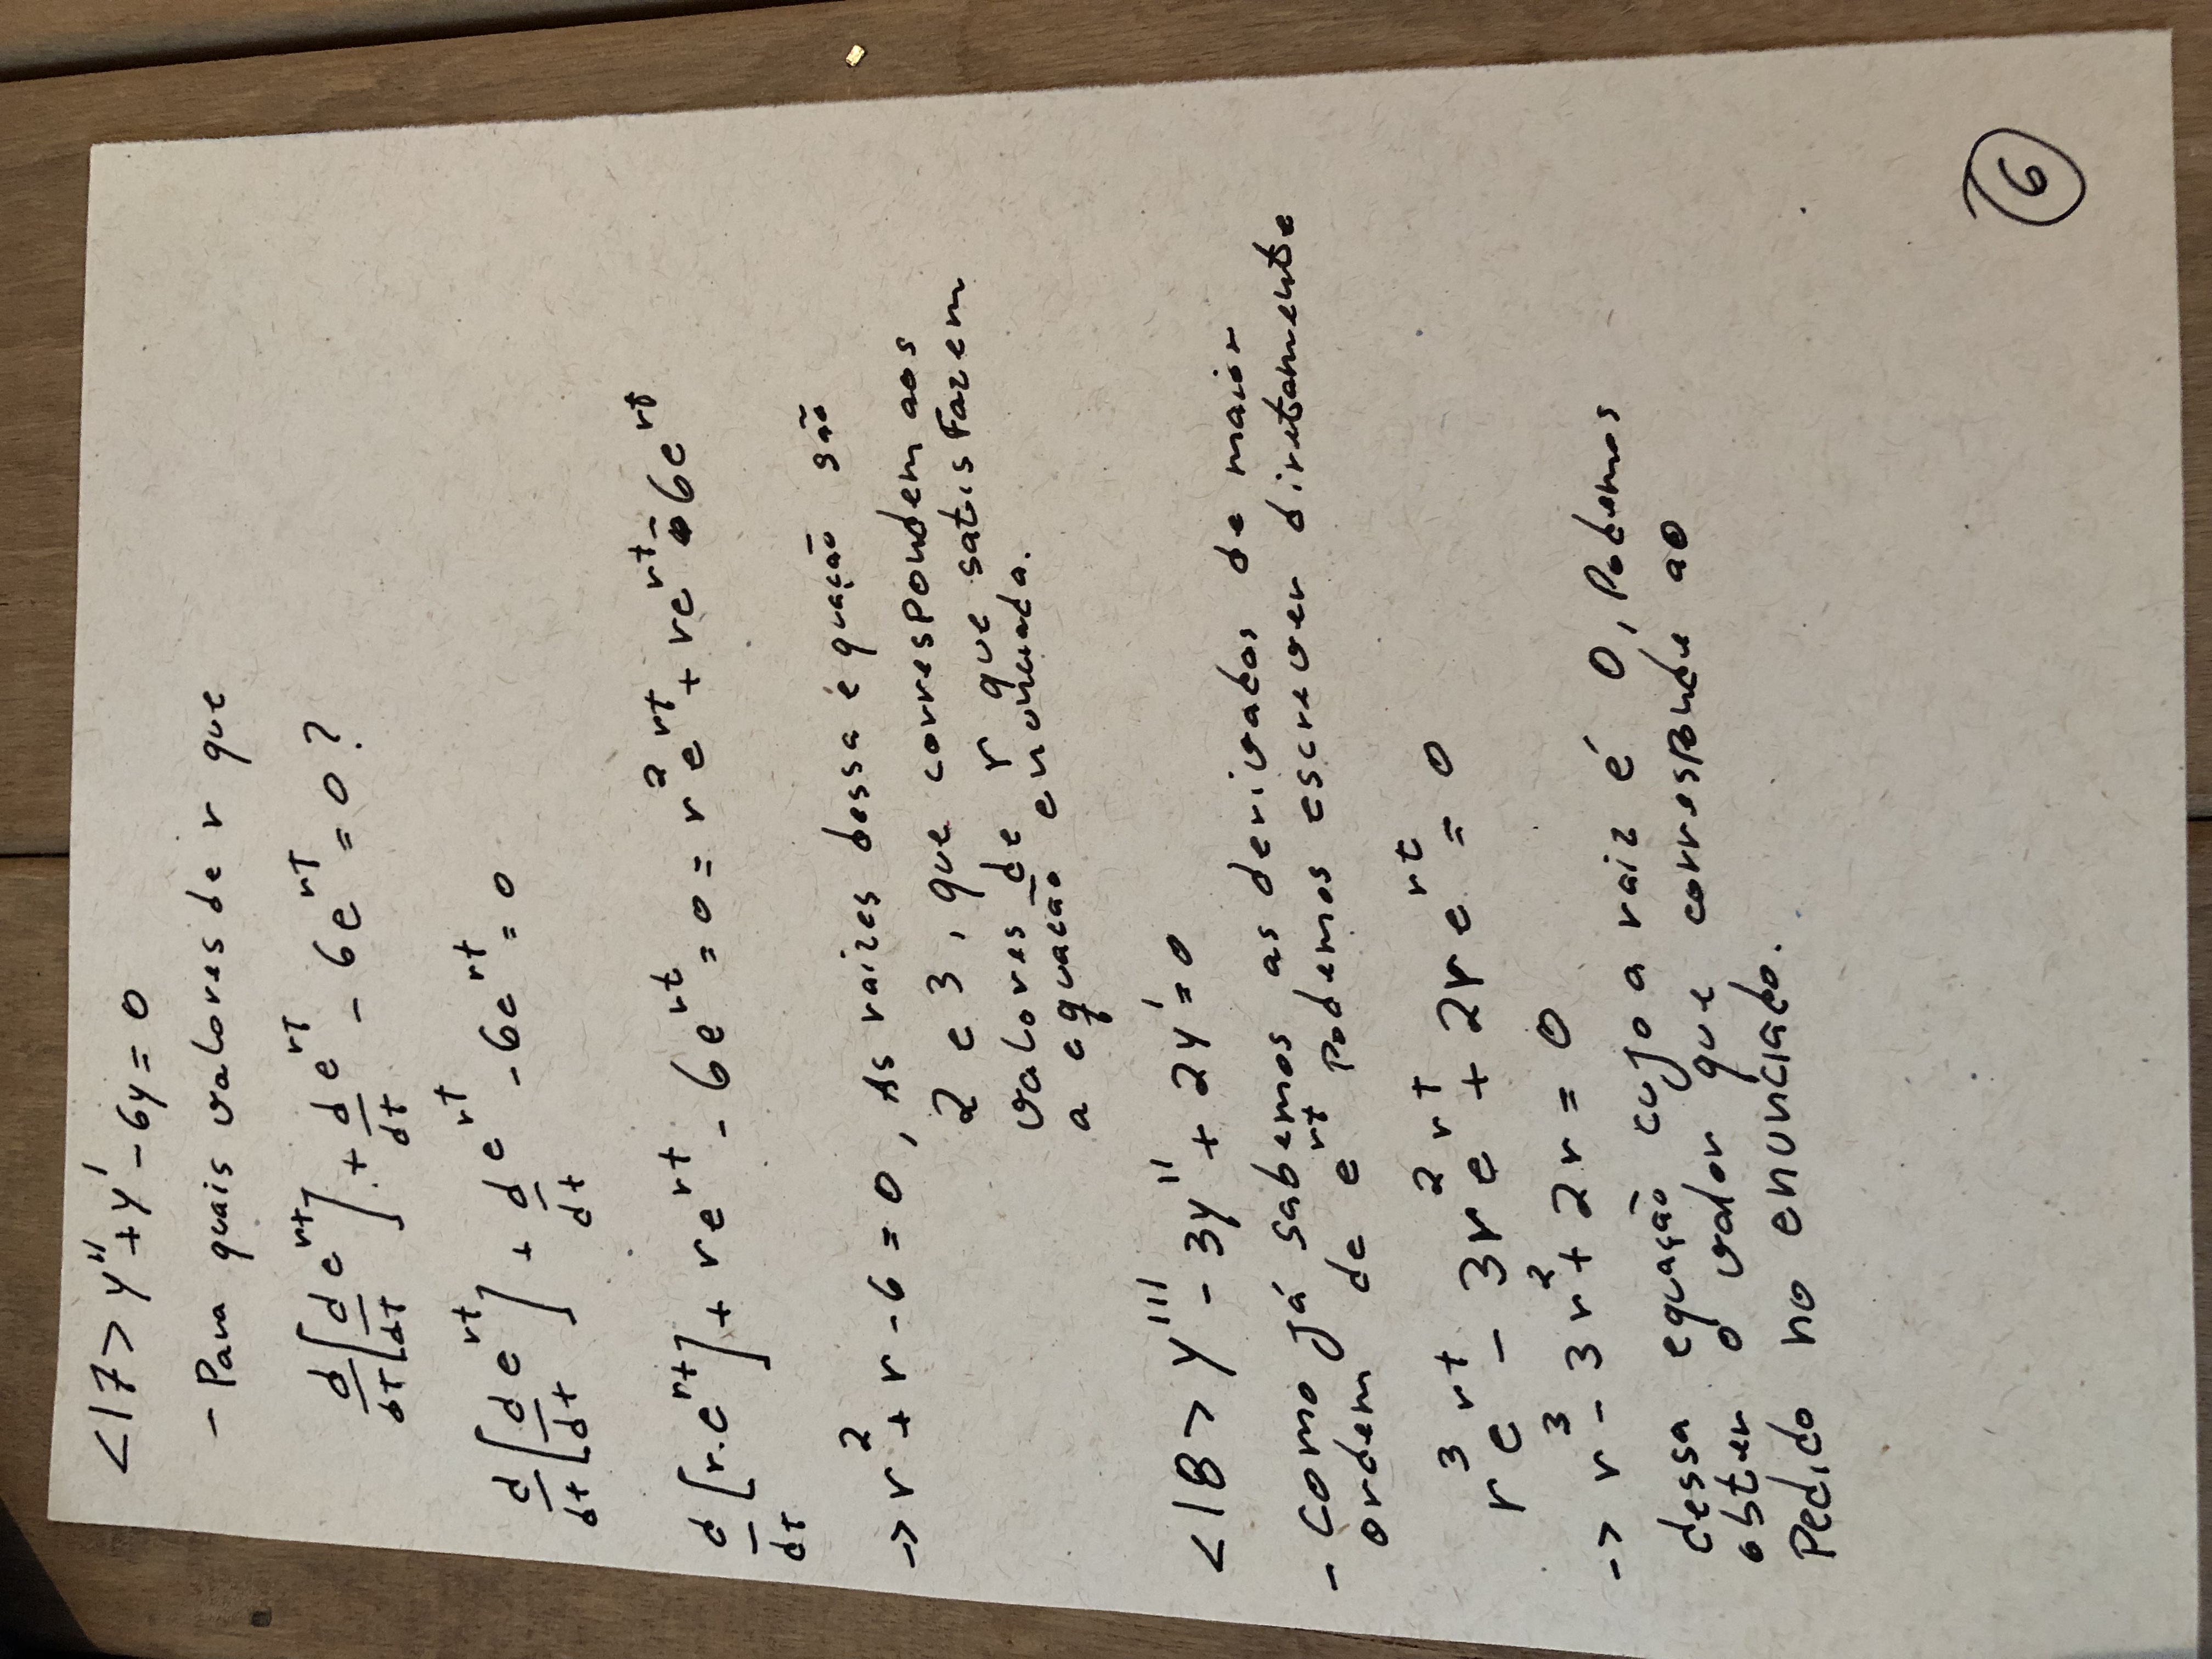 <17> y'' + y' - 6y = 0
- Para quais valores de r que
d/dt [d/dt e^rt] + d/dt e^rt - 6e^rt = 0?
d/dt [d/dt e^rt] + d/dt e^rt - 6e^rt = 0
d/dt [r.e^rt] + re^rt - 6e^rt = 0 = r^2 e^rt + re^rt - 6e^rt
-> r^2 + r - 6 = 0, As raizes dessa equação são
2 e 3, que correspondem aos
valores de r que satisfazem
a equacão enunciada.
<18> y''' - 3y'' + 2y' = 0
- como já sabemos as derivadas de maior
ordem de e^rt podemos escrever diretamente
r^3 e^rt - 3r^2 e^rt + 2re^rt = 0
-> r^3 - 3r^2 + 2r = 0
dessa equação cujo a raiz é 0, Podemos
obter o valor que corresponde ao
Pedido no enunciado.
6